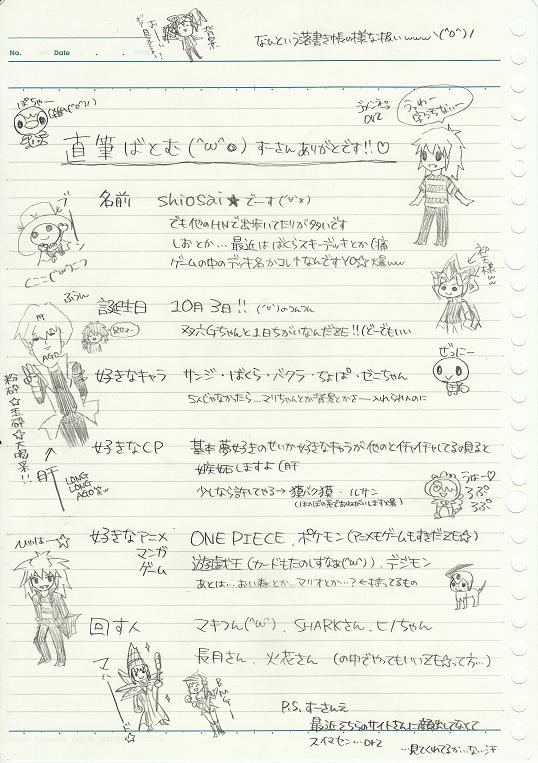 なんという落書き帳の様な扱いwww＼(^o^)／
No.
Date
ぽちゃー
うわー
字汚なぃー
直筆ばとむ(^ω^●) すーさんありがとです!!♡
名前 shiosai★でーす(°∀°*)
でも他のHNで出歩いてたりが多いです
しおとか…最近はばくらスキーデッキとか(痛
ゲームの中のデッキ名がコレ↑なんですYO☆爆ww
ぷうん
誕生日 10月3日!!
双六Gちゃんと1日ちがいなんだZE!!(どーでもいい
AGO
ぜにー
好きなキャラ サンジ・ばくら・バクラ・ちょぱ・ゼニちゃん
5人じゃなかったら…マリちゃんとか
粉砕☆玉砕☆大喝采!!
肝
LONG
LONG
AGO☆
好きなCP 基本夢好きのせいか好きなキャラが他のとイチャイチャしてるの見ると
嫉妬しますよ(肝
少しなら許してやる→獏バク獏・ルサン
うはー♡
ひゃはー☆
好きなアニメ ONE PIECE、ポケモン(アニメもゲームもすきだZE☆)
マンガ 遊戯王(カードもたのしすなぁ(^ω^))、デジモン
ゲーム あとは…おい森とか…マリオとか…?←持ってるもの
回す人 マキつん(^ω^)、SHARKさん、ヒノちゃん
長月さん、火花さん (の中でやってもいいZE☆って方…)
BMG
P.S. すーさんえ
最近そちらのサイトさんに顔出してなくて
スイマセン…orz
…見てくれてるか…な…汗